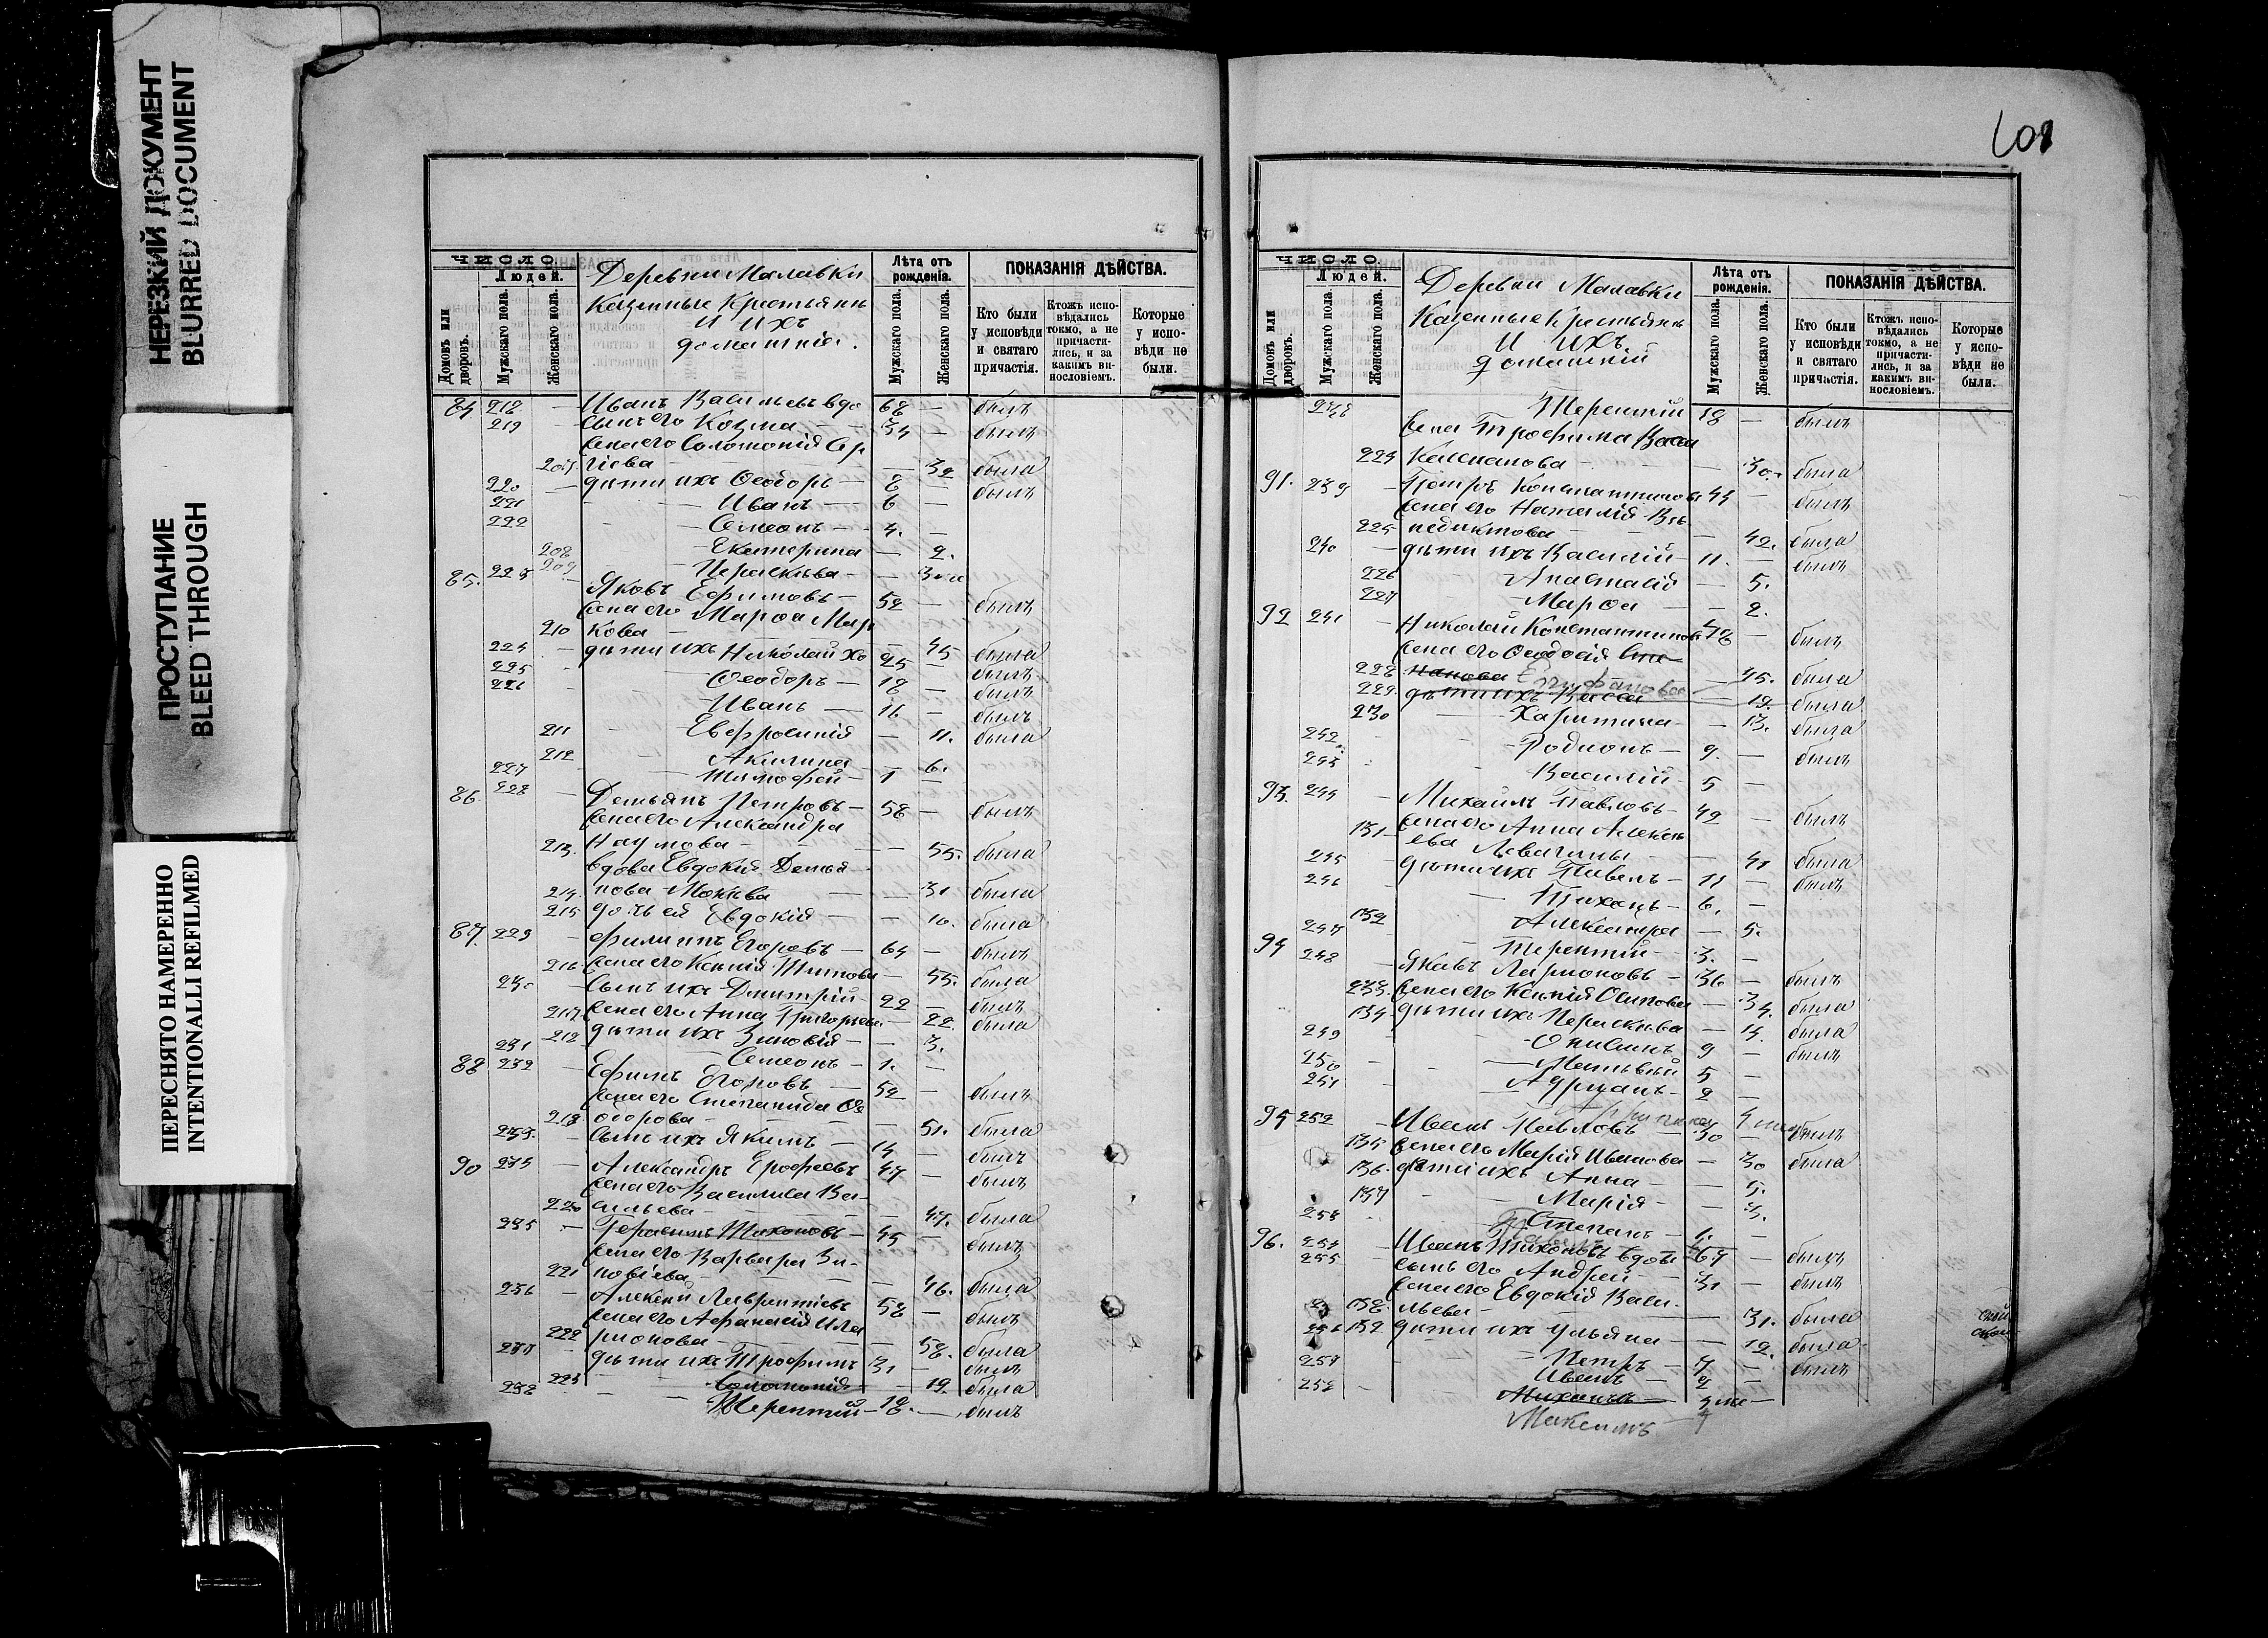 НЕРЕЗКИЙ ДОКУМЕНТ
BLURRED DOCUMENT
ПРОСТУПАНИЕ
BLEED THROUGH
ПЕРЕСНЯТО НАМЕРЕННО
INTENTIONALLI REFILMED
ЧИСЛО
Домовъ или дворовъ.
Людей.
Мужскаго пола.
Женскаго пола.
Деревни Малавки
Казенные Крестьянъ
и ихъ
домашнiи.
Лѣта отъ рожденiя.
Мужскаго пола.
Женскаго пола.
ПОКАЗАНIЯ ДѢЙСТВА.
Кто были у исповѣди и святаго причастiя.
Ктожъ исповѣдались токмо, а не причастились, и за какимъ винословiемъ.
Которые у исповѣди не были.
84 218 — Иванъ Васильевъ вдо 68 — былъ
219 — сынъ его Козма 34 — былъ
жена его Соломонiя Сер
207 гiева — 32 была
220 — дѣти ихъ Ѳеодоръ — 8 былъ
221 Иванъ — 6 —
222 Симеонъ — 4. —
208 Екатерина — 2.
209 Параскѣва —
85. 223 Яковъ Ефимовъ — 52 — былъ
жена его Марѳа Мар
210 кова — 45 была
224 — дѣти ихъ Николай хо 25 — былъ
225 Ѳеодоръ — 18 — былъ
226 Иванъ — 16 — былъ
211 Евфросинiя — 11. была
212 Акилина — 6.
227 Тимофей — 1 —
86. 228 — Демьянъ Петровъ — 58 — былъ
жена его Александра
213. Наумова — 55. была
вдова Евдокiя Демья
214. нова Мокѣва — 31 была
215 дочь ея Евдокiя — 10. была
87. 229 — Филиппъ Егоровъ — 64 — былъ
216 жена его Ксенiя Титова — 55. была
230 — сынъ ихъ Дмитрiй — 22 — былъ
217 жена его Анна Григорьева — 22. была
218 дѣти ихъ Зиновiя — 3.
231 Симеонъ — 1. —
88 232 — Ефимъ — 52 — былъ
жена его Степанида Ѳе
219 одорова — 51. была
233. — сынъ ихъ Якимъ — 14 — былъ
90 234 — Александръ Ерофеевъ 47 — былъ
жена его Василиса Ва-
220 сильева — 47. была
235 — Герасимъ Тихоновъ — 45 — былъ
жена его Варвара Зи-
221 новiева — 46. была
236 — Алексѣй Лаврентiевъ 58 — былъ
жена его Афанасiя Ила
222 рiонова — 58. была
237 — дѣти ихъ Трофимъ 31 — былъ
223 Соломонiя — 19. была
238 — Терентiй — 18. — былъ
ЧИСЛО
Домовъ или дворовъ.
Людей.
Мужскаго пола.
Женскаго пола.
Деревни Малавки
Казенные Крестьянъ
и ихъ
домашнiй
Лѣта отъ рожденiя.
Мужскаго пола.
Женскаго пола.
ПОКАЗАНIЯ ДѢЙСТВА.
Кто были у исповѣди и святаго причастiя.
Ктожъ исповѣдались токмо, а не причастились, и за какимъ винословiемъ.
Которые у исповѣди не были.
238 Терентiй 18 — былъ
жена Трофима Васса
224 — 30. была
91. 239 — Петръ Константиновъ 44 — былъ
жена его Наталiя Вене
225 недиктова — 42. была
240 — дѣти ихъ Василiй — 11. — былъ
226 Анастасiя — 5.
227 Марѳа — 2.
92 241 — Николай Константиновъ 48 — былъ
жена его Ѳеодосiя Сте
228 панова Епифанова — 45. была
229 дѣти ихъ Васса — 19. была
230 Харитина — 13. была
242 Родiонъ — 9. — былъ
243 Василiй — 5 —
93. 244 — Михаилъ Павловъ — 42 — былъ
131 жена его Анна Алексѣ
ева — 41 была
245 — дѣти ихъ Павелъ — 11 — былъ
246 Тихонъ — 6. —
132 Александра — 5.
247 Терентiй — 3. —
94 248 — Яковъ Ларiоновъ — 36 — былъ
233. жена его Ксенiя Осипова — 34. была
134 дѣти ихъ Параскѣва — 14. была
249 Онисимъ 9 — былъ
250 Матвѣй 5 —
251 Адрiанъ — 2 —
95 252 — Иванъ Павловъ — 30 — былъ
135 жена его Марiя Иванова — 30 была
136. дѣти ихъ Анна — 5.
137 Марiя — 3.
253 Степанъ — 1. —
96. 254 — Иванъ Тихоновъ вдовъ 64 — былъ
255 сынъ его Андрей — 31 — былъ
жена его Евдокiя Васи-
138. льева — 31. была
256 139 дѣти ихъ Ульяна — 12. была
257 Петръ — 7 — былъ
Иванъ — 2 —
258 — Михаилъ —
Максимъ